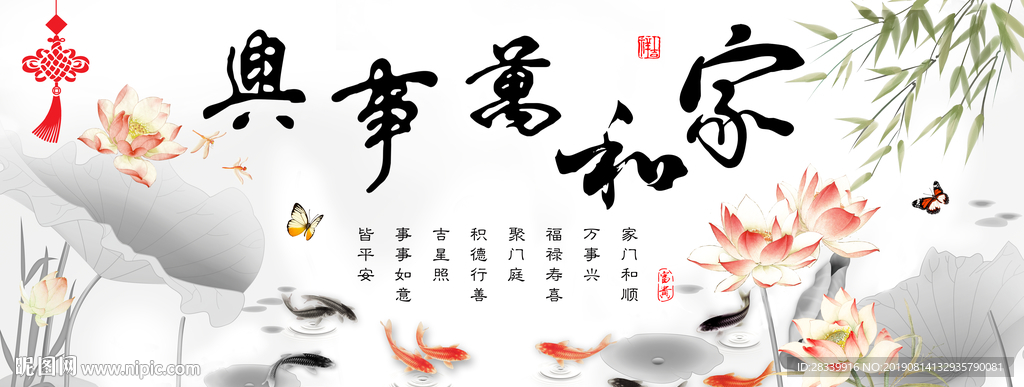 家和萬事興
家门和顺
万事兴
福禄寿喜
聚门庭
积德行善
吉星照
事事如意
皆平安
昵图网 www.nipic.com
ID:28339916 NO:20190814132935790081